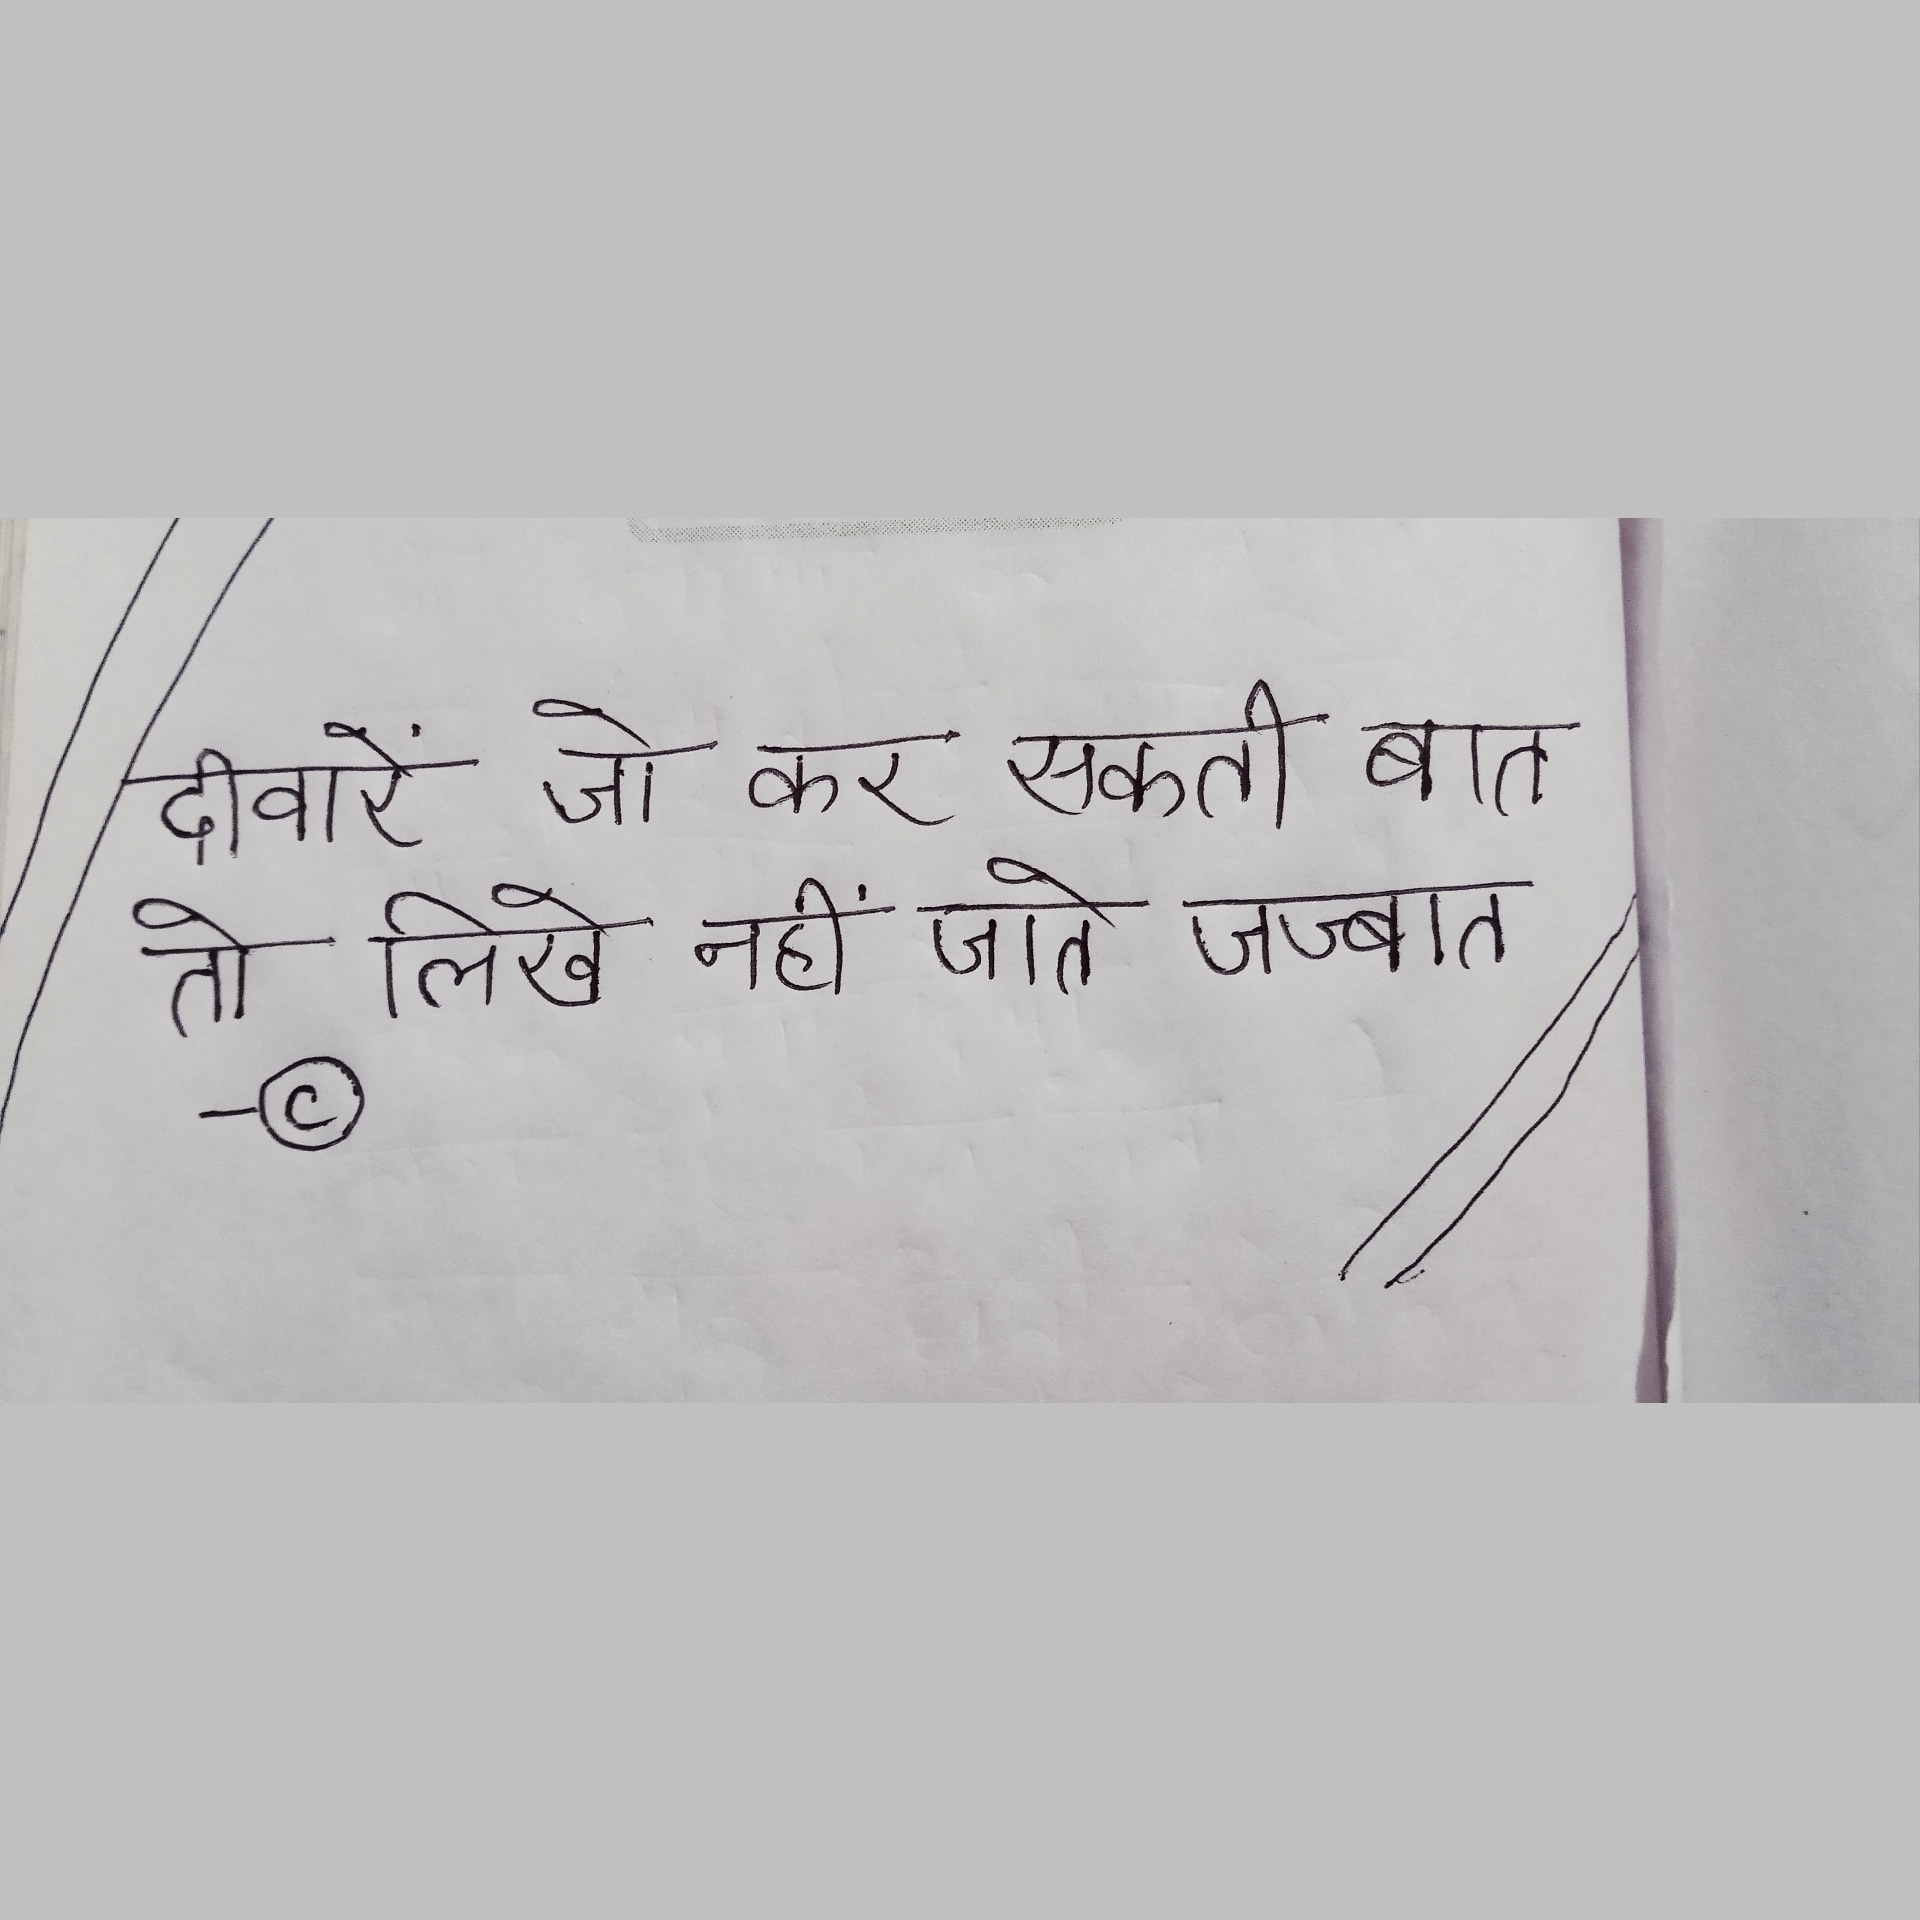 दीवारें जो कर सकती बात
तो लिखे नहीं जाते जज्बात
-©